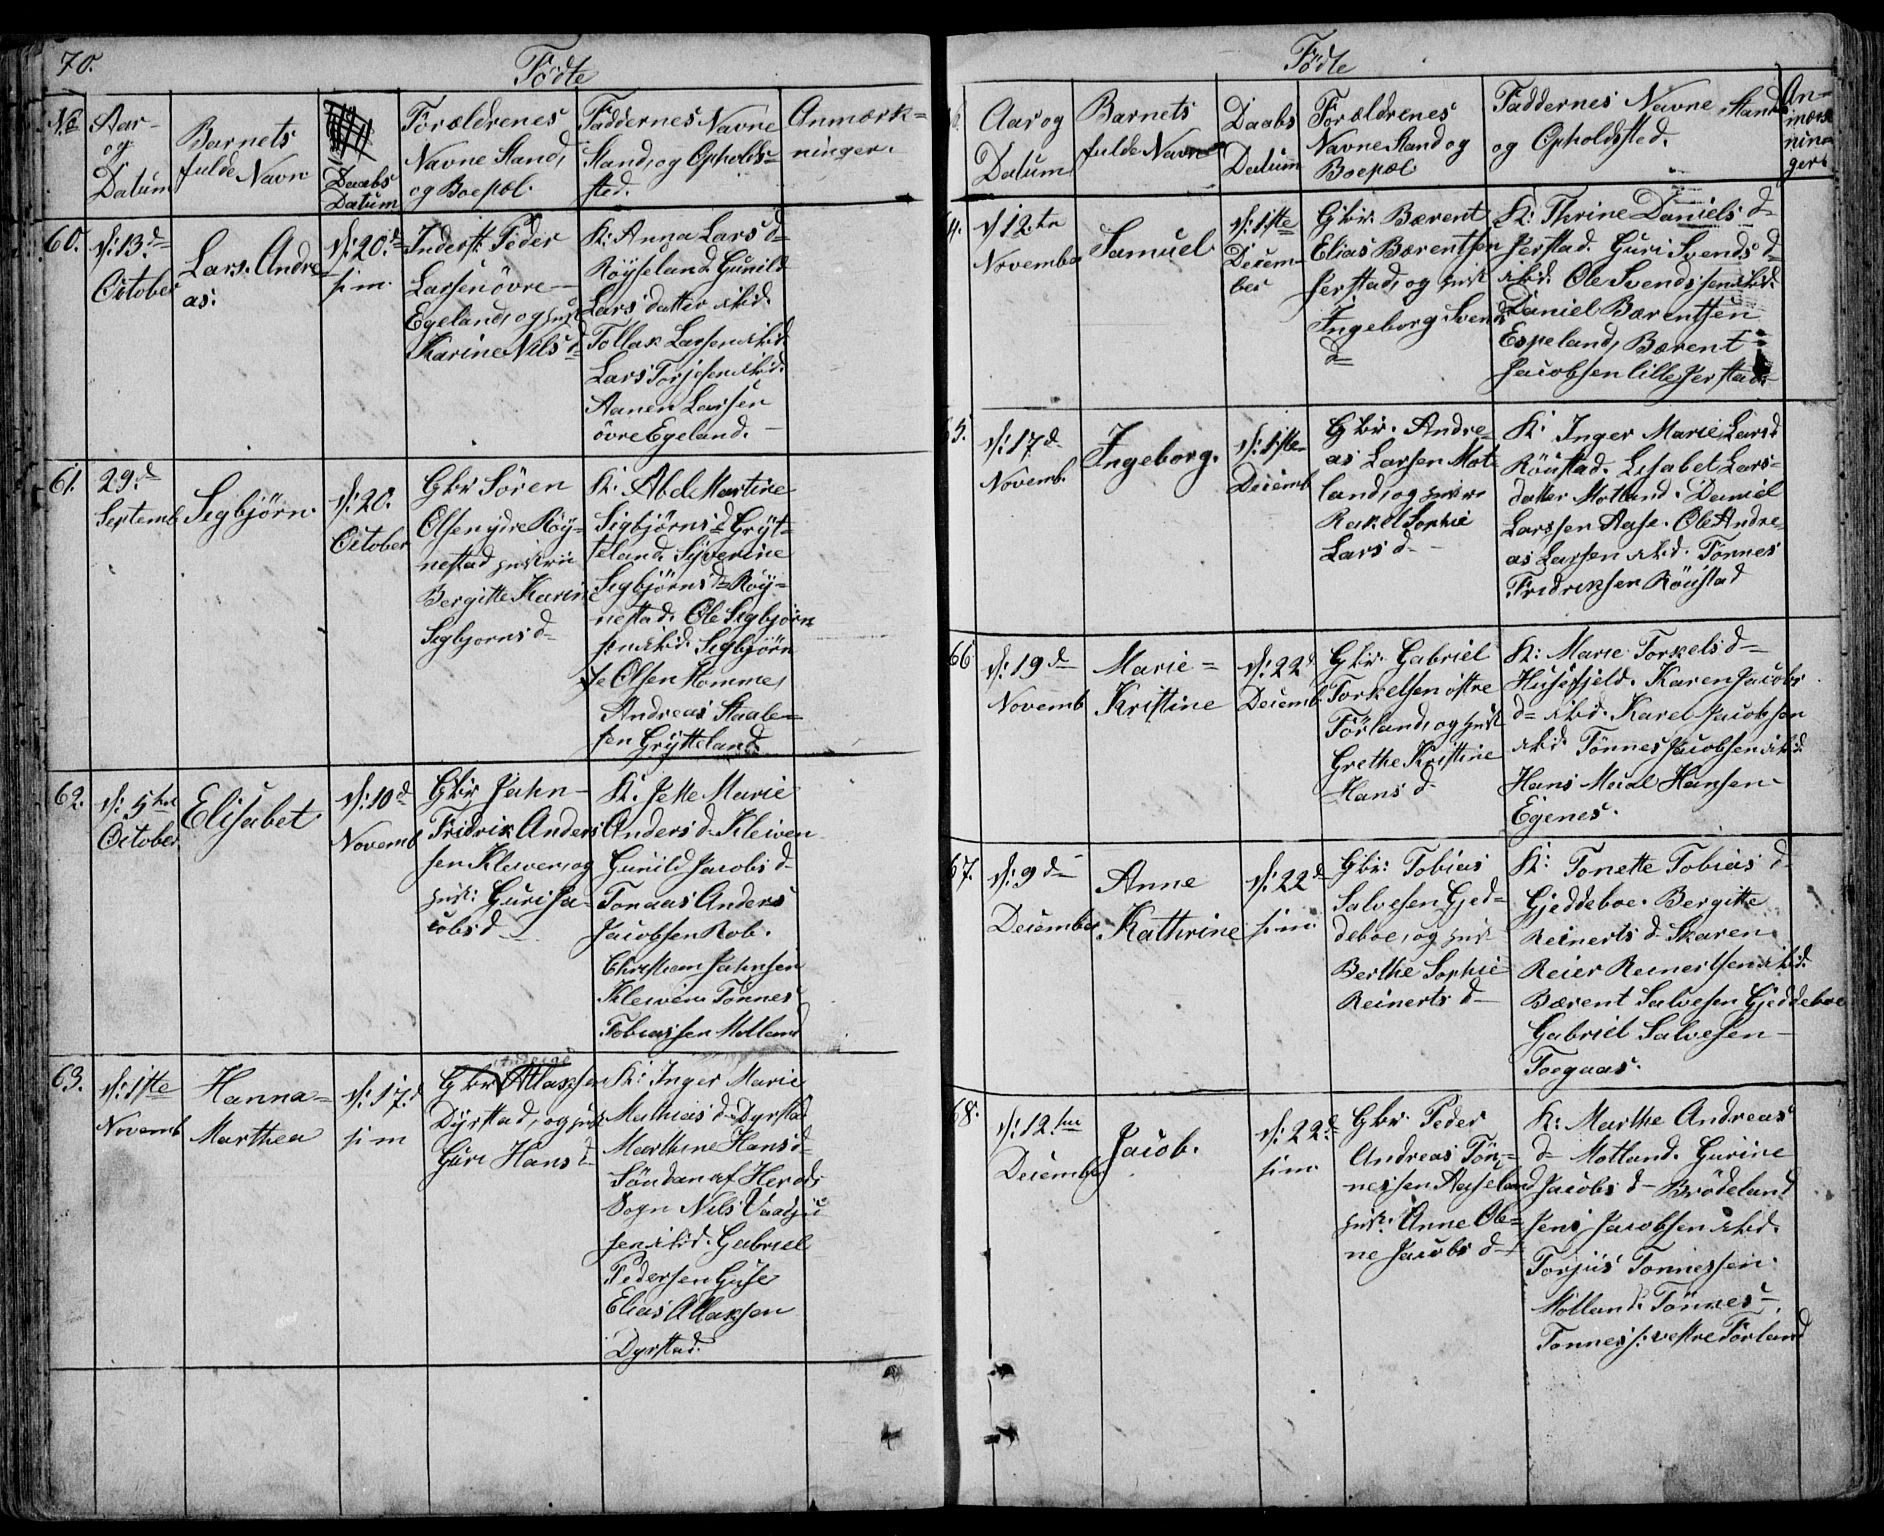 70.
Födte
No
Aar-
og
Datum
Barnets
fulde Navn
Daabs
Datum
Forældrenes
Navne Stand,
og Boepæl.
Faddernes Navne
Stand, og Opholds-
sted.
Anmærk=
ninger.
60.
d: 13d
October
Lars Andre
as.
d: 20d
s: m.
Inderst: Peder
Larsen övre
Egeland, og hust
Karine Nils d
K: Anna Lars d
Röyseland. Gunild
Lars datter ibid.
Tollak Larsen ibid
Lars Torjesen ibid.
Aanen Larsen
övre Egeland.
61.
29d
Septemb
Sigbjörn.
d: 20.
October
Gbr Sören
Olsen ydre Röy-
nestad
Bergitte Karine
Sigbjorns d
K: Abel Martine
Sigbjörns d Gryt-
teland. Syverine
Sigbjörns d Röy=
nestad. Ole Sigbjörn
sen ibid. Sigbjörn
Olsen Homme,
Andreas Staale=
sen Grytteland
62.
d: 5te
October
Elisabet
d: 10d
Novemb
Gbr Jahn
Fridrik Anders
sen Kleiven, og
hust: Guri Ja-
cobs d
K. Jette Marie
Anders d. Kleiven
Gunild Jacobs d
Tonaas Anders
Jacobsen Rob.
Christian Jahnsen
Kleiven Tönnes
Tobiassen Molland
63.
d: 1ste
Novemb
Hanna=
Marthea
d: 17.d
s: m
Gbr Atlaksen
Dyrstad, og hust
Guri Hans d
K: Inger Marie
Mathias d. Dyrstad
Marthine Hans d
Söndan af Herods
Sogn Nils
sen ibid. Gabriel
Pedersen
Elias Atlaksen
Dyrstad.
Födte
Aar og
Datum
Barnets
fulde Navn
Daabs
Datum
Forældrenes
Navne Stand og
Boepæl
Faddernes Navne, Stand
og Opholdssted.
An-
mærk
nin-
ger.
4.
d 12te
November
Samuel
d: 1ste
Decem-
ber
Gbr: Bærent
Elias Bærentsen
Jerstad, og hust
Ingeborg Svends
d
K: Thrine Daniels d
Jerstad. Guri Svends d
ibid. Ole Svendssen ibid.
Daniel Bærentsen
Espeland, Bærent
Jacobsen lille Jerstad
5.
d: 17d
Novemb.
Ingeborg.
d: 1ste
Decemb
Gbr. Andre-
as Larsen Mot
land, og
Rakel Sophie
Lars d
K: Inger Marie Lars d
Röustad. Lisabet Lars-
datter Motland. Daniel
Larssen Aase. Ole Andre-
as Larsen ibid. Tönnes
Fridriksen Röustad
66
d: 19d
Novemb
Marie=
Kristine
d: 22d
Decemb.
Gbr. Gabriel
Torkelsen östre
Förland, og hust
Grethe Kristine
Hans d
K: Marie Torkels d
Husefjeld. Karen Jacobs
d ibid. Karel Jacobsen
ibid. Tönnes Jacobsen ibid
Hans Hansen
Egenes.
67.
d: 9d
December
Anne
Kathrine
d: 22d
s: m.
Gbr: Tobias
Salvesen Gjed-
deboe, og hust
Berthe Sophie
Reinerts d
K: Tonette Tobias d
Gjeddeboe. Bergitte
Reinerts d Skaren
Reier Reinertsen ibid.
Bærent Salvesen Gjeddeboe
Gabriel Salvesen
Toegaas.
68.
d: 12te
December
Jacob.
d: 22d
s: m.
Gbr Peder
Andreas Tön-
nessen Aaseland
hust: Anne Ole=
ne Jacobs d
K: Marthe Andreas
d Motland. Gurine
Jacobs d Brödeland
Jens Jacobsen ibid.
Torjus Tonnessen
Motland. Tönnes
Tonness: vestre Förland